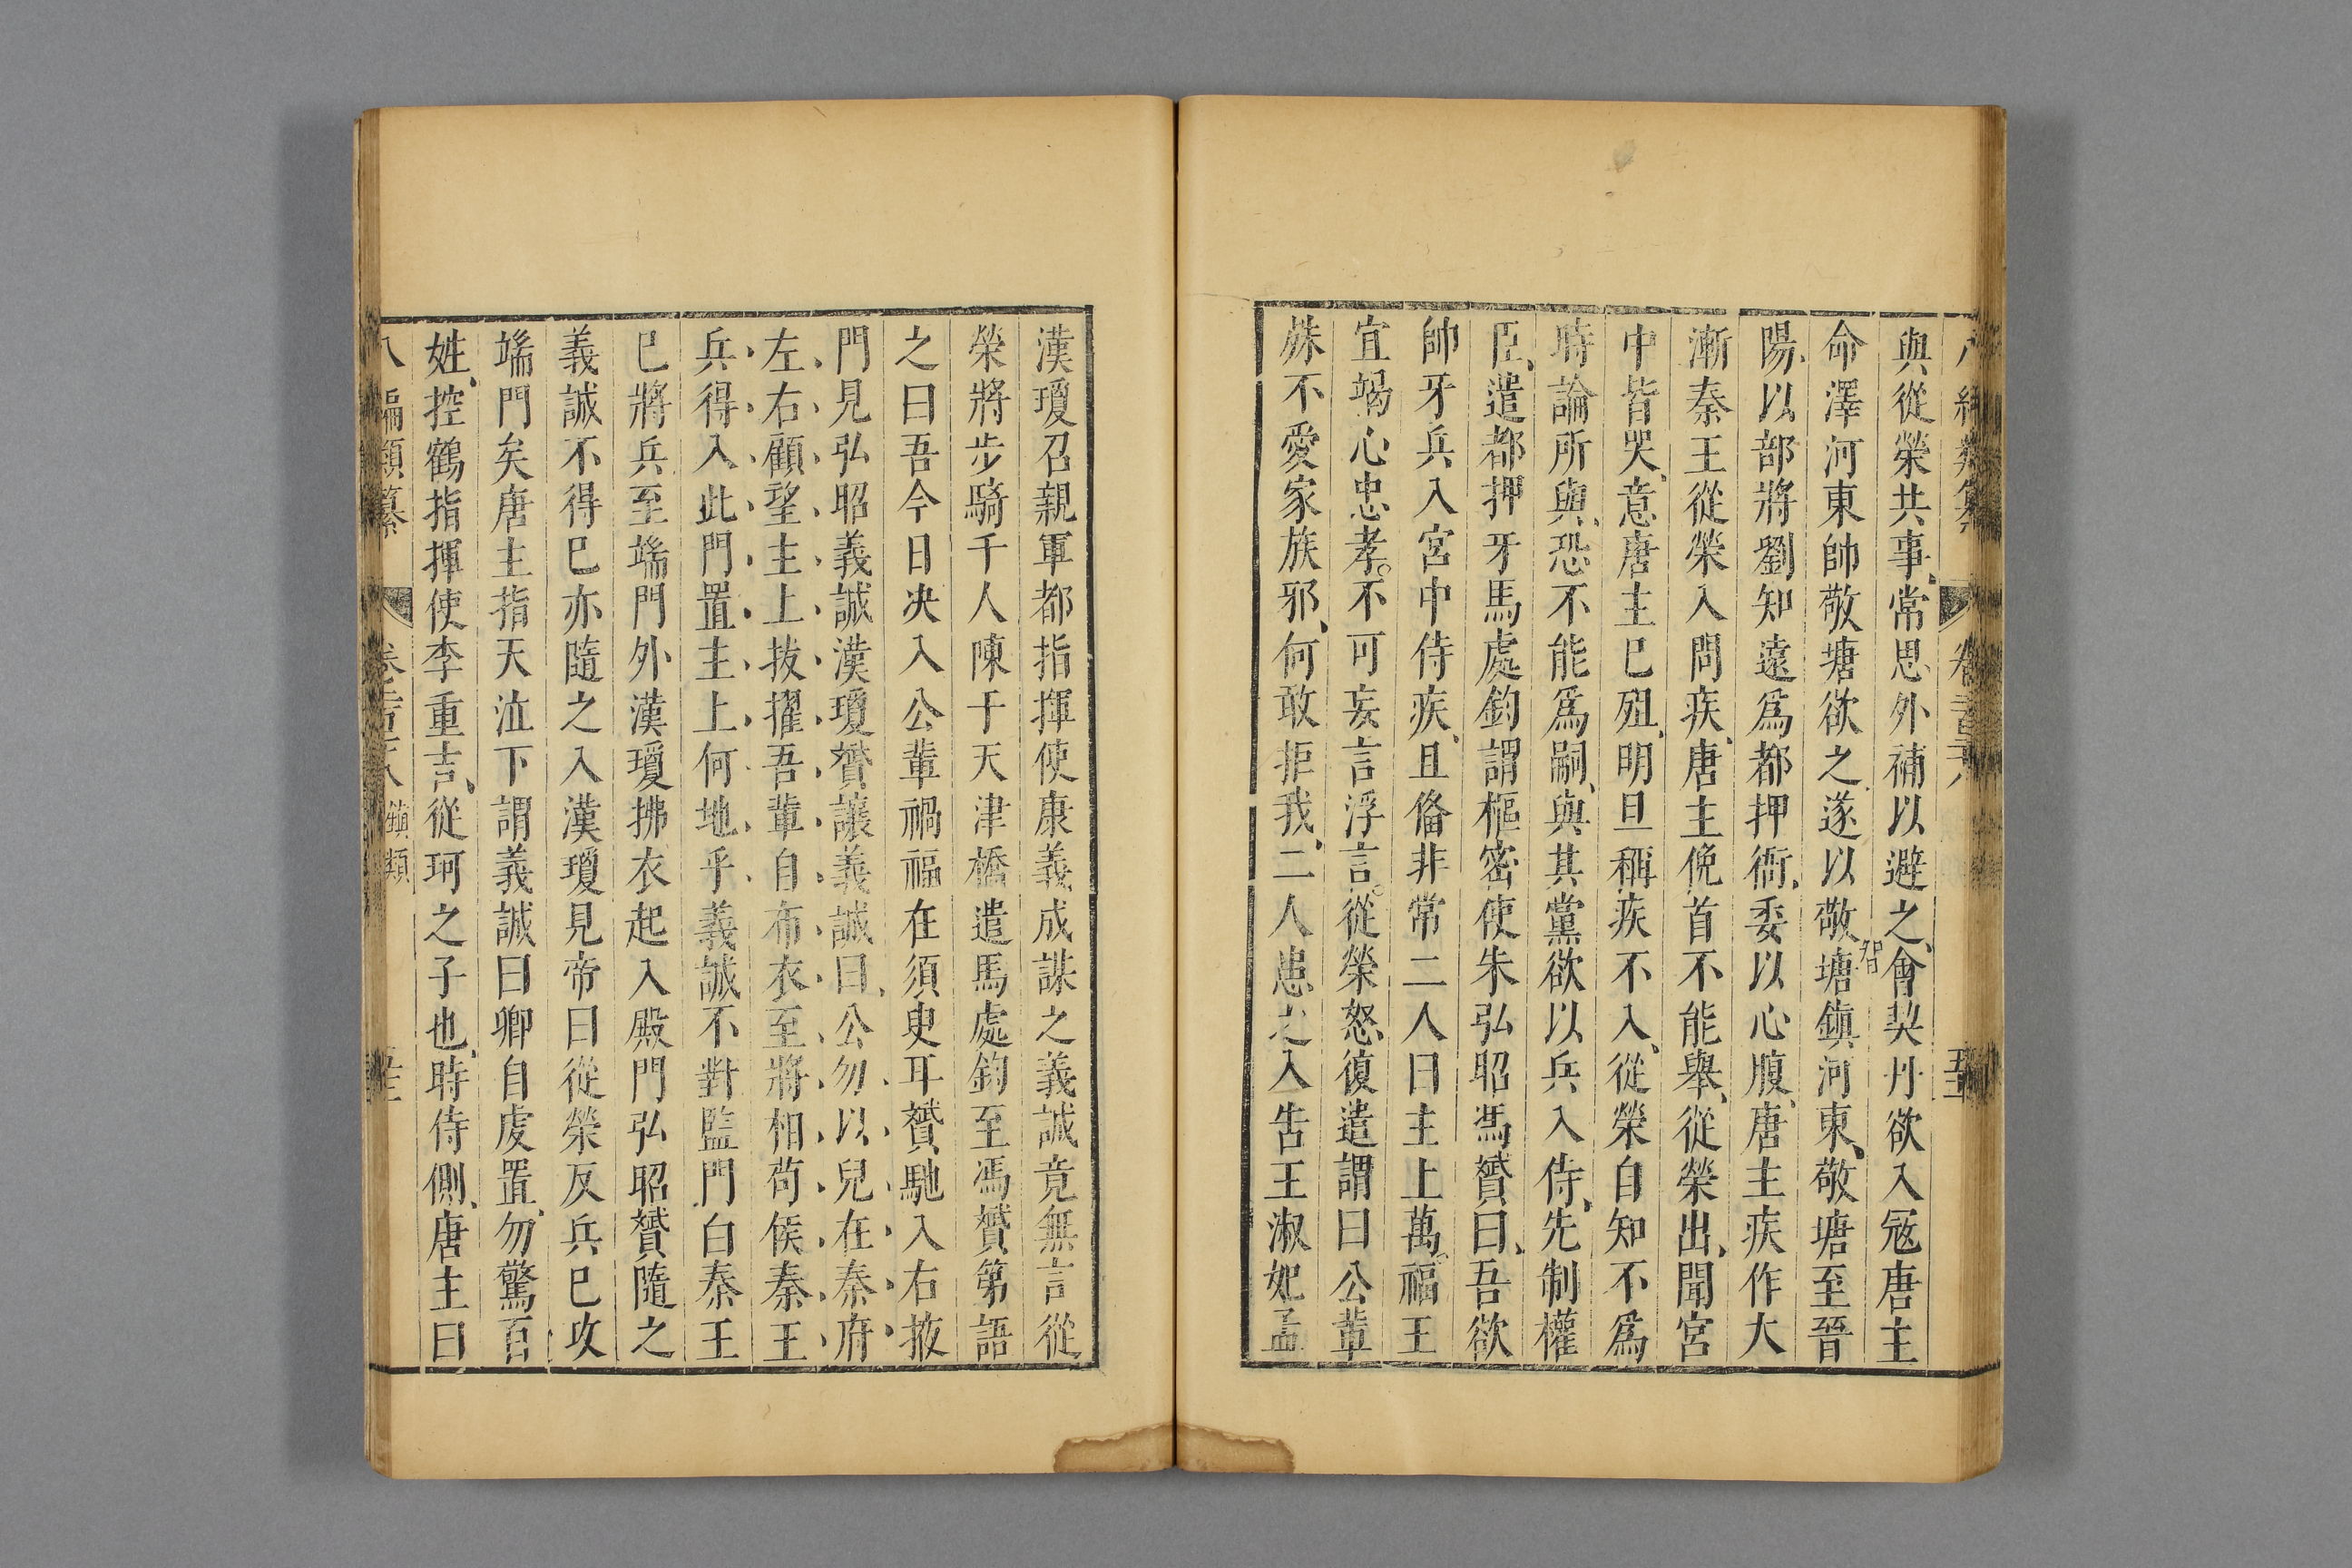 與從榮共事常思外補以避之會契丹欲入冦唐主
智
命澤河東帥敬塘欲之遂以敬塘鎮河東敬塘至晉
陽以部將劉知遠為都押衙委以心腹唐主疾作大
漸秦王從榮入問疾唐主俛首不能舉從榮出聞宮
中皆哭意唐主已殂明旦稱疾不入從榮自知不為
時論所與恐不能為嗣與其黨欲以兵入侍先制權
臣遣都押牙馬處鈞謂樞密使朱弘昭馮贇曰吾欲
帥牙兵入宮中侍疾且俻非常二人曰主上萬福王
宜竭心忠孝不可妄言浮言從榮怒復遣謂曰公輩
殊不愛家族邪何敢拒我二人患之入告王淑妃孟
漢瓊召親軍都指揮使康義成謀之義誠竟無言從
榮將步騎千人陳于天津橋遣馬處鈞至馮贇第語
之曰吾今日决入公輩禍福在須臾耳贇馳入右掖
門見弘昭義誠漢瓊贇讓義誠曰公勿以兒在秦府
左右顧望主上拔擢吾輩自布衣至將相苟候秦王
兵得入此門置主上何地乎義誠不對監門白秦王
已將兵至端門外漢瓊拂衣起入殿門弘昭贇隨之
義誠不得已亦隨之入漢瓊見帝曰從榮反兵已攻
端門矣唐主指天泣下謂義誠曰卿自處置勿驚百
姓控鶴指揮使李重吉從珂之子也時侍側唐主曰
八編類纂 鎮類